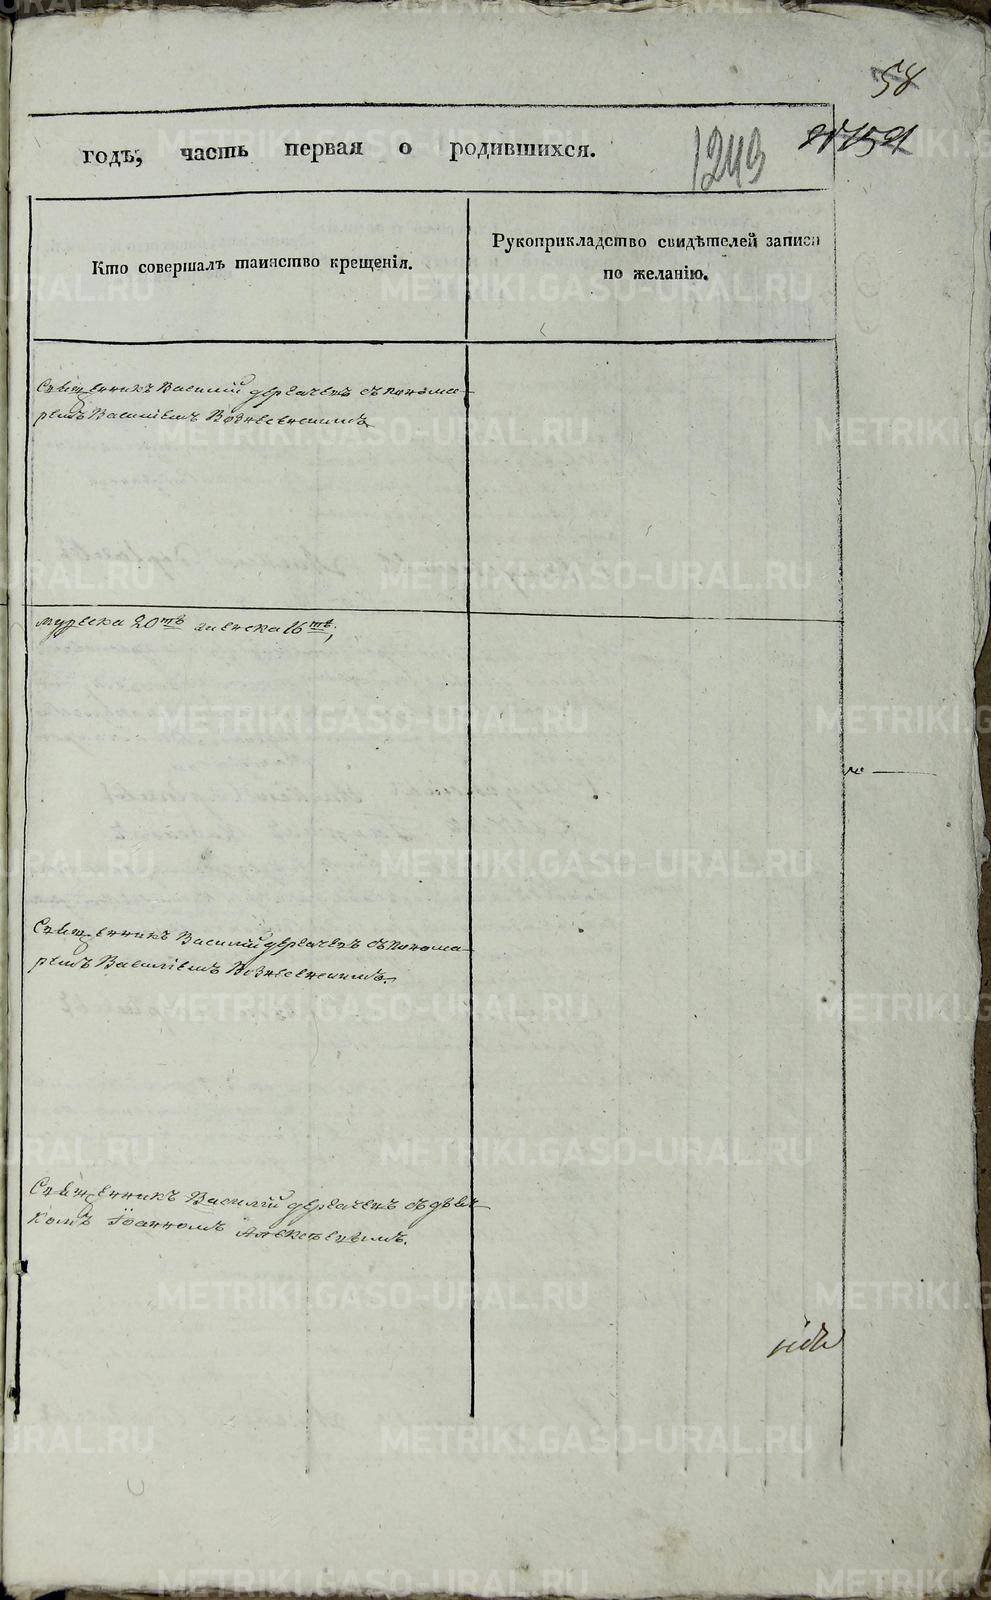 58
годъ, часть первая о родившихся.
1243
Кто совершалъ таинство крещенія.
Рукоприкладство свидѣтелей записи
по желанію.
Священникъ Василий Дергачевъ съ понома-
ремъ Василіемъ Вознесенскимъ
мужеска 20тъ женска 16тъ,
Священникъ Василий Дергачевъ съ понома-
ремъ Василіемъ Вознесенскимъ.
Священникъ Василий Дергачевъ съ дьяч-
комъ Іоанномъ Алексѣевымъ.
METRIKI.GASO-URAL.RU